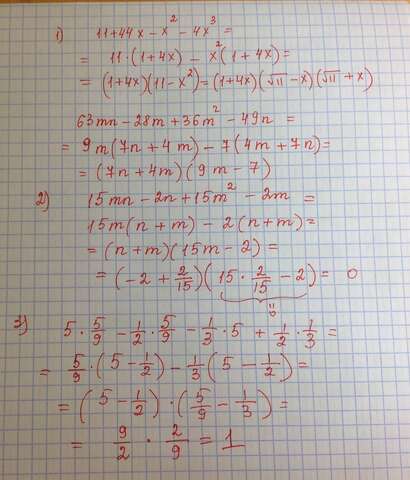 1) 11+44x-x²-4x³=
= 11·(1+4x)-x²(1+4x)=
= (1+4x)(11-x²)=(1+4x)(√11-x)(√11+x)
63mn-28m+36m²-49n =
= 9m(7n+4m)-7(4m+7n)=
= (7n+4m)(9m-7)
2) 15mn-2n+15m²-2m =
15m(n+m)-2(n+m)=
= (n+m)(15m-2)=
= (-2+2/15)(15·2/15-2)= 0
=0
3) 5·5/9-1/2·5/9-1/3·5+1/2·1/3=
= 5/9·(5-1/2)-1/3(5-1/2)=
= (5-1/2)·(5/9-1/3)=
= 9/2·2/9=1